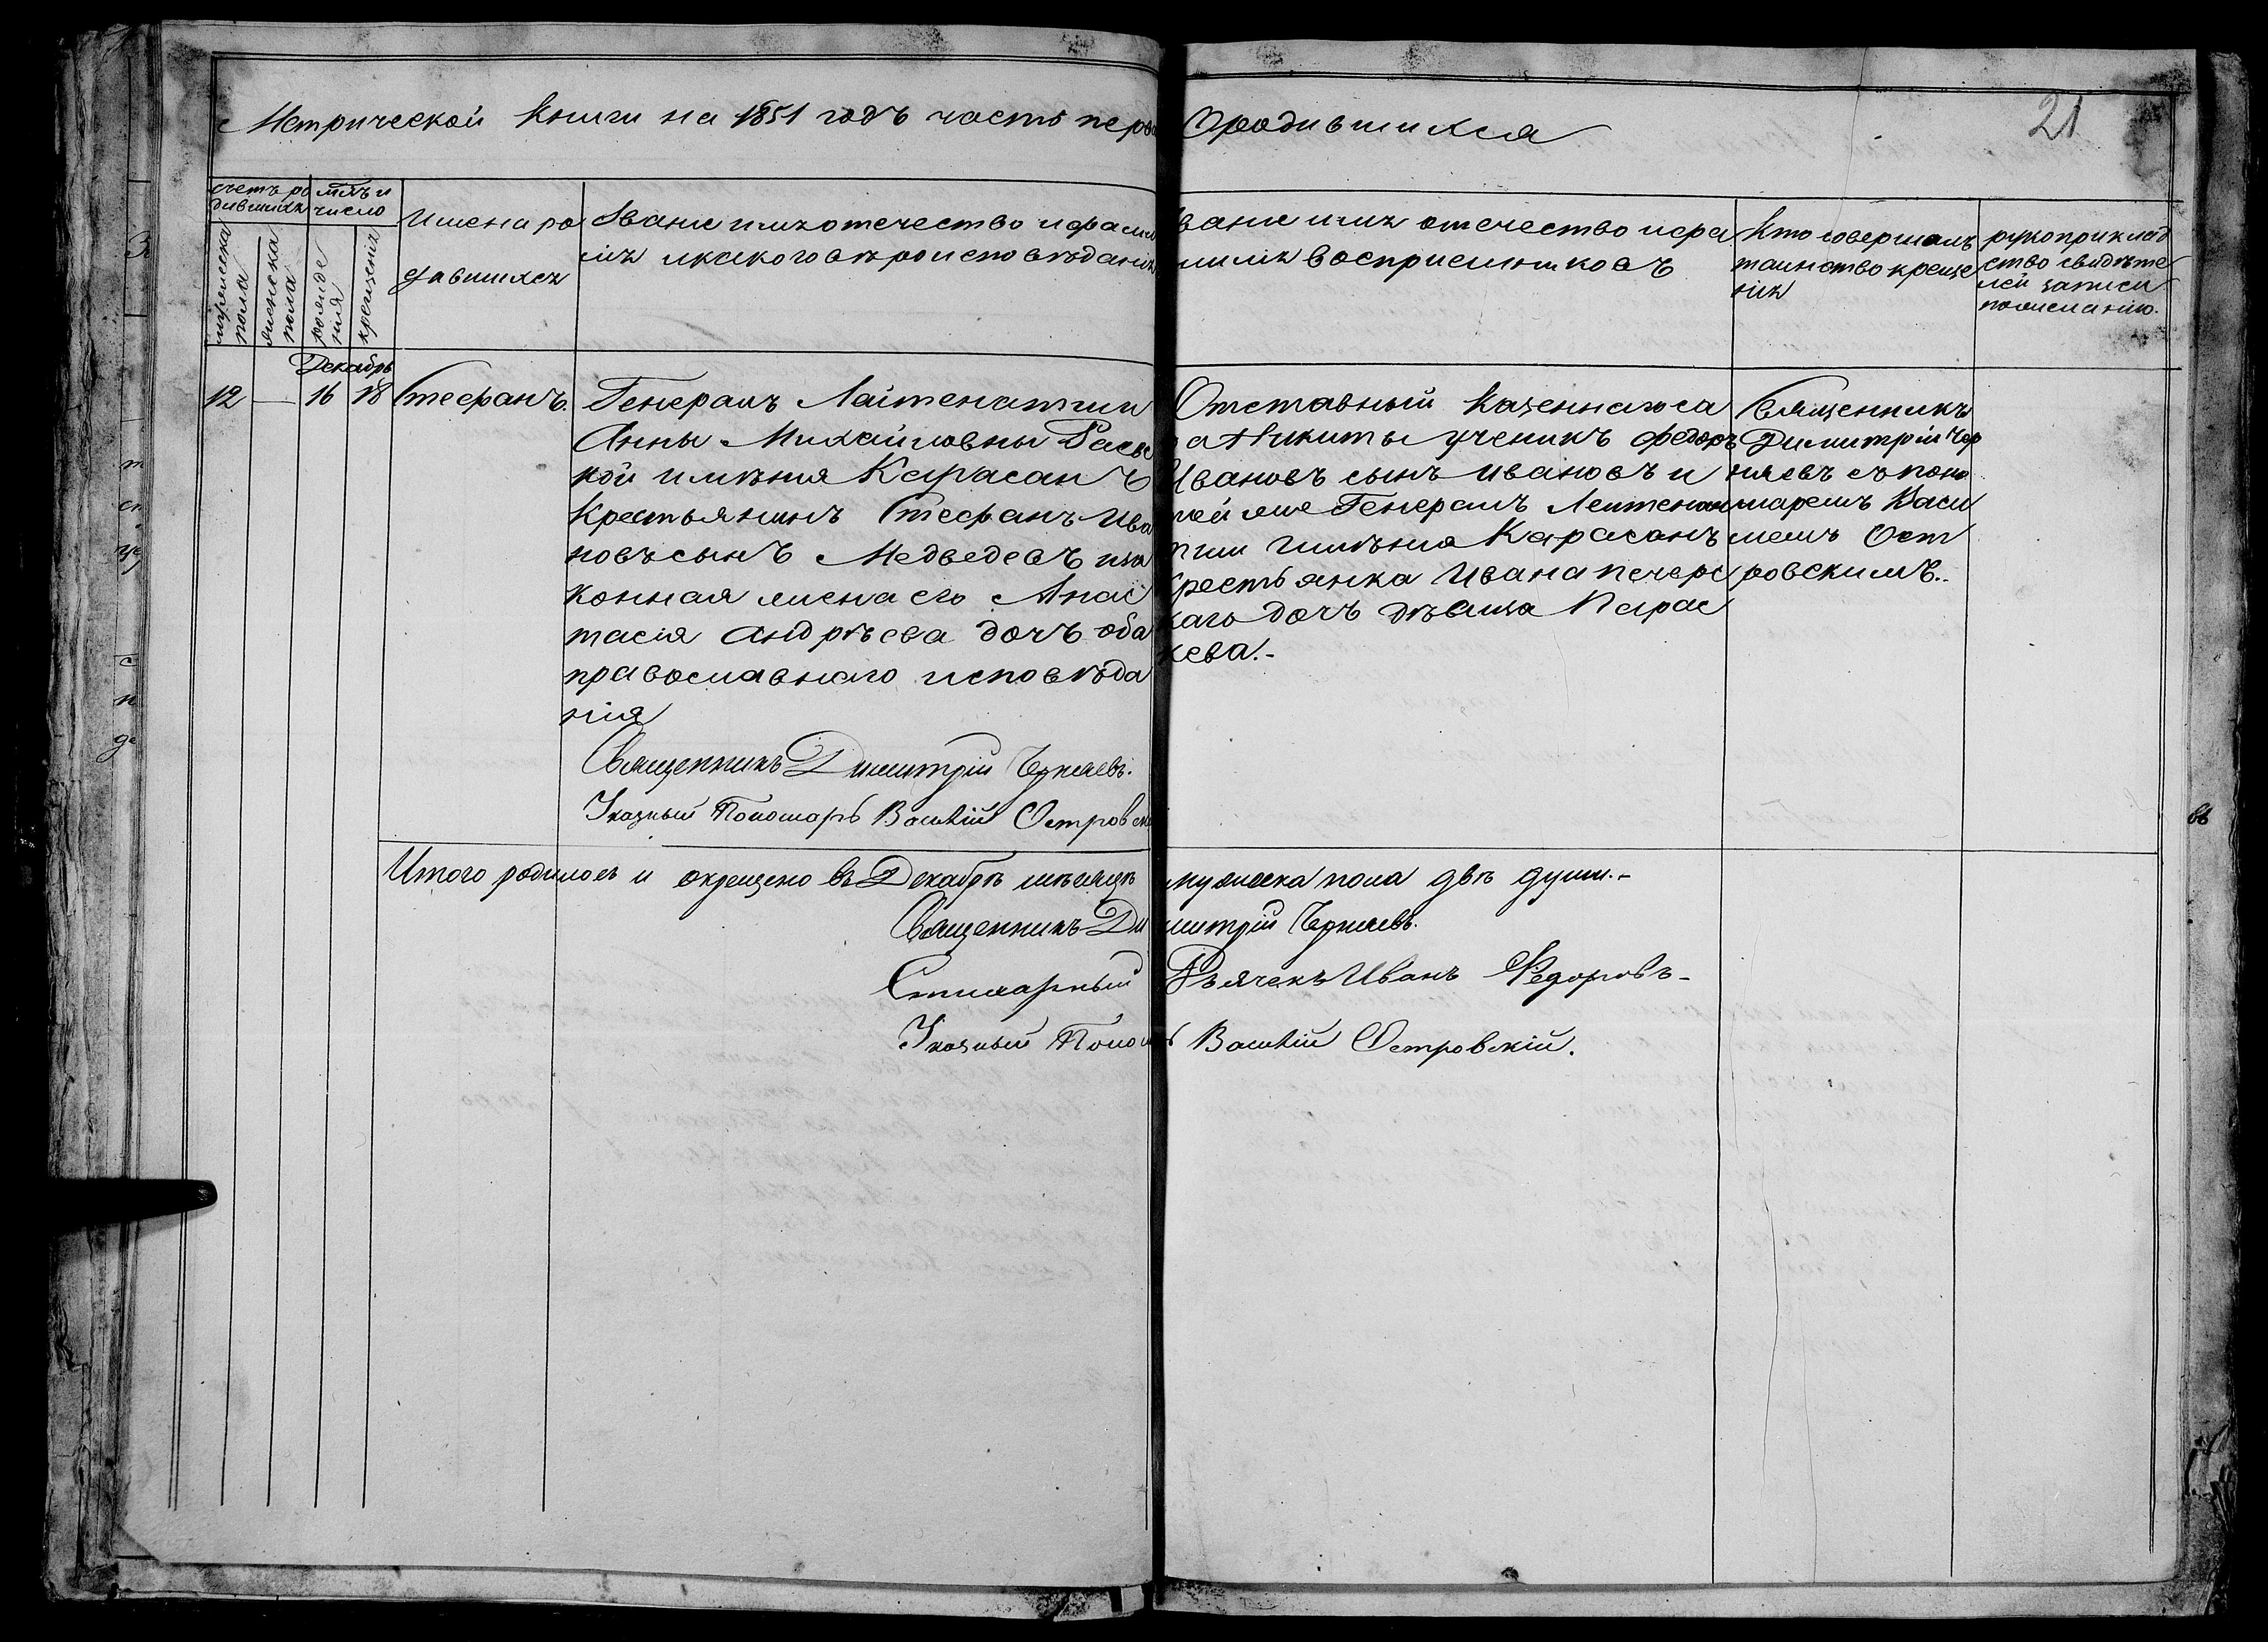 Метрической книги на 1851 годъ часть перва
Ородившихся
21
счетъ ро
дившихъ
мѣц и
число
мужеска
пола
женска
пола
рожде
нія
крещенія
Имена ро
дившихся
Званіе имя отечество и фами
лія икакого вѣроисповѣданія
Званіе имя отечество и фа
миліи воспріемниковъ
Кто совершалъ
таинство креще
нія
рукоприклад
ство свидѣте
лей записи
пожеланію.
Декабрь
12 — 16 18 Стефанъ.
Генералъ Лайтенатши
Анны Михайловны Раевс
кой имѣнія Карасанъ
Крестьянинъ Стефанъ Ива
новъ сынъ Медведевъ иза
конная жена его Анас
тасія Андрѣева дочъ оба
православнаго исповѣда
нія
Священникъ Димитрій Черняевъ.
Указный Пономарь Василій Островск
Отставный Казеннагоса
да Никиты ученикъ федоръ
Ивановъ сынъ Ивановъ и
той же Генералъ Лейтенан
тши имѣнія Карасанъ
Крестьянка Ивана печерс
каго дочъ дѣвица Парас
кева.-
Священникъ
Димитрій Чер
няевъ съ поно
маремъ Васи
лемъ Ост
ровскимъ..
Итого родилось и окрещено въ Декабрѣ мѣсяцѣ мужеска пола двѣ души.-
Священникъ Димитрій Черняевъ.
Стихарный Дьячекъ Иванъ Федоровъ-
Указный Пономарь Василій Островскій.